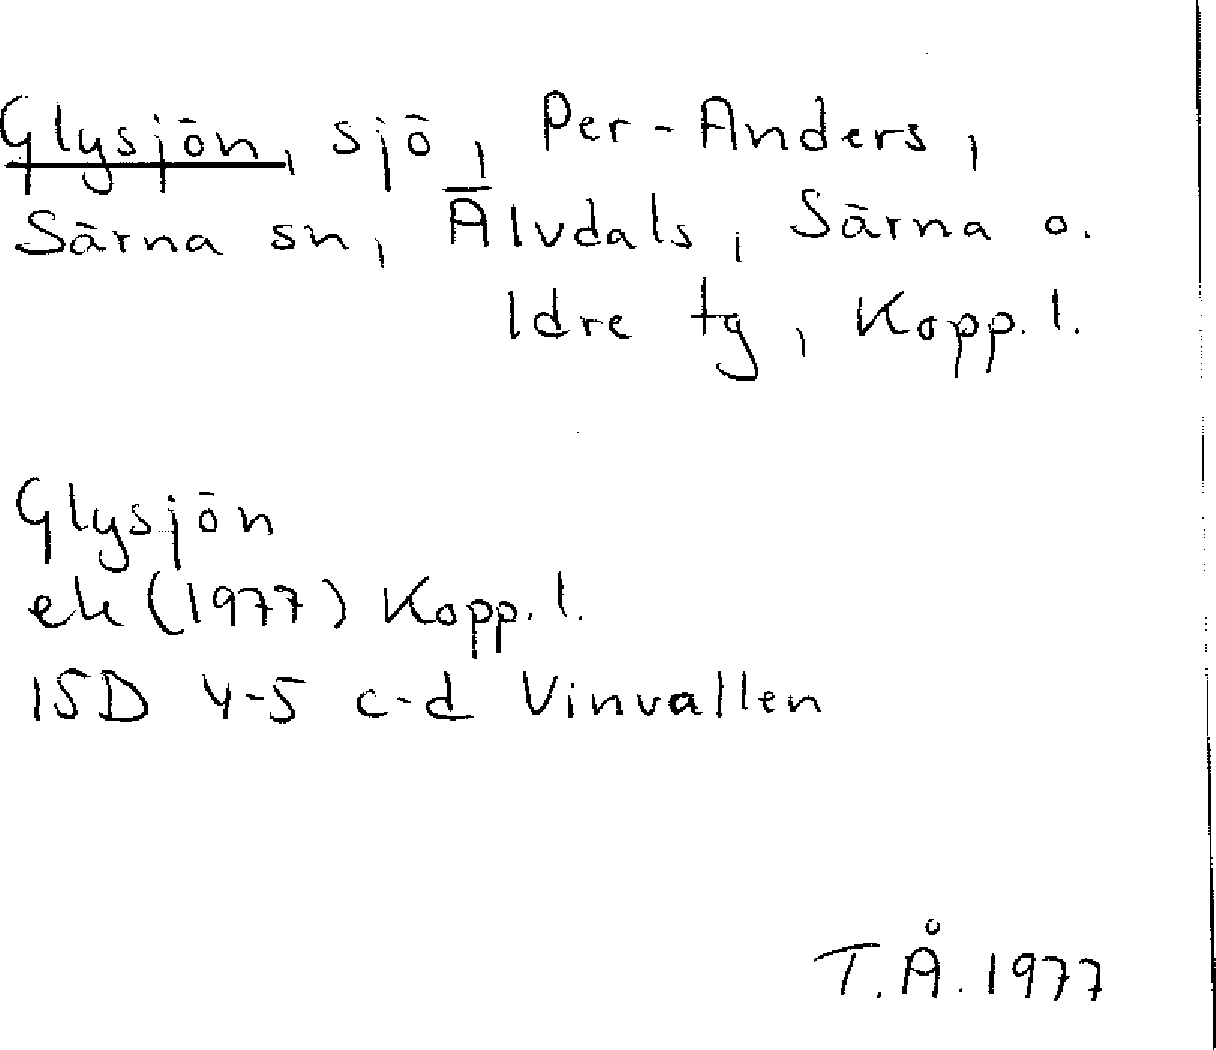 Glysjön, sjö, Per-Anders,
Särna sn, Älvdals, Särna o.
Idre tg, Kopp. l.
Glysjön
ek (1977) Kopp. l.
15D 4-5 c-d Vinvallen
T.Å. 1977